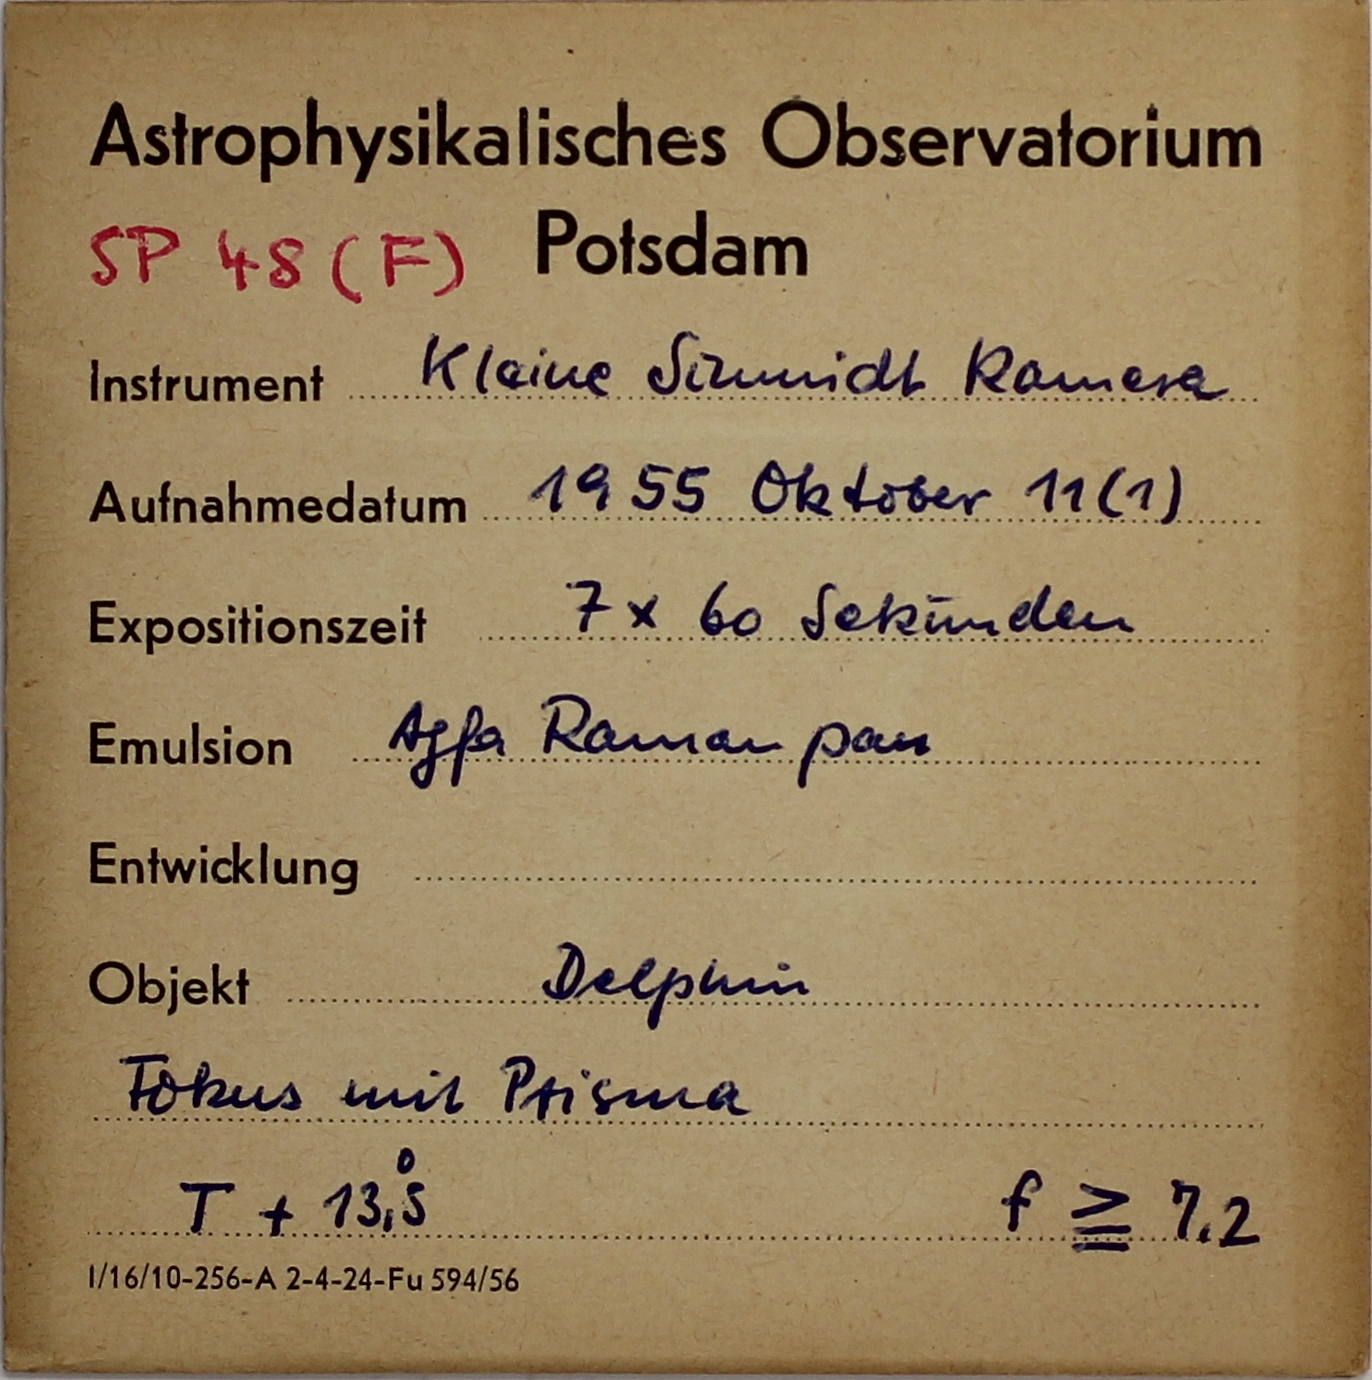 Astrophysikalisches Observatorium
SP 48 (F) Potsdam
Instrument Kleine Schmidt Kamera
Aufnahmedatum 1955 Oktober 11(1)
Expositionszeit 7 x 60 Sekunden
Emulsion Agfa Raman pan
Entwicklung
Objekt Delphin
Fokus mit Prisma
T + 13,5° f ≧ 7.2
I/16/10-256-A 2-4-24-Fu 594/56